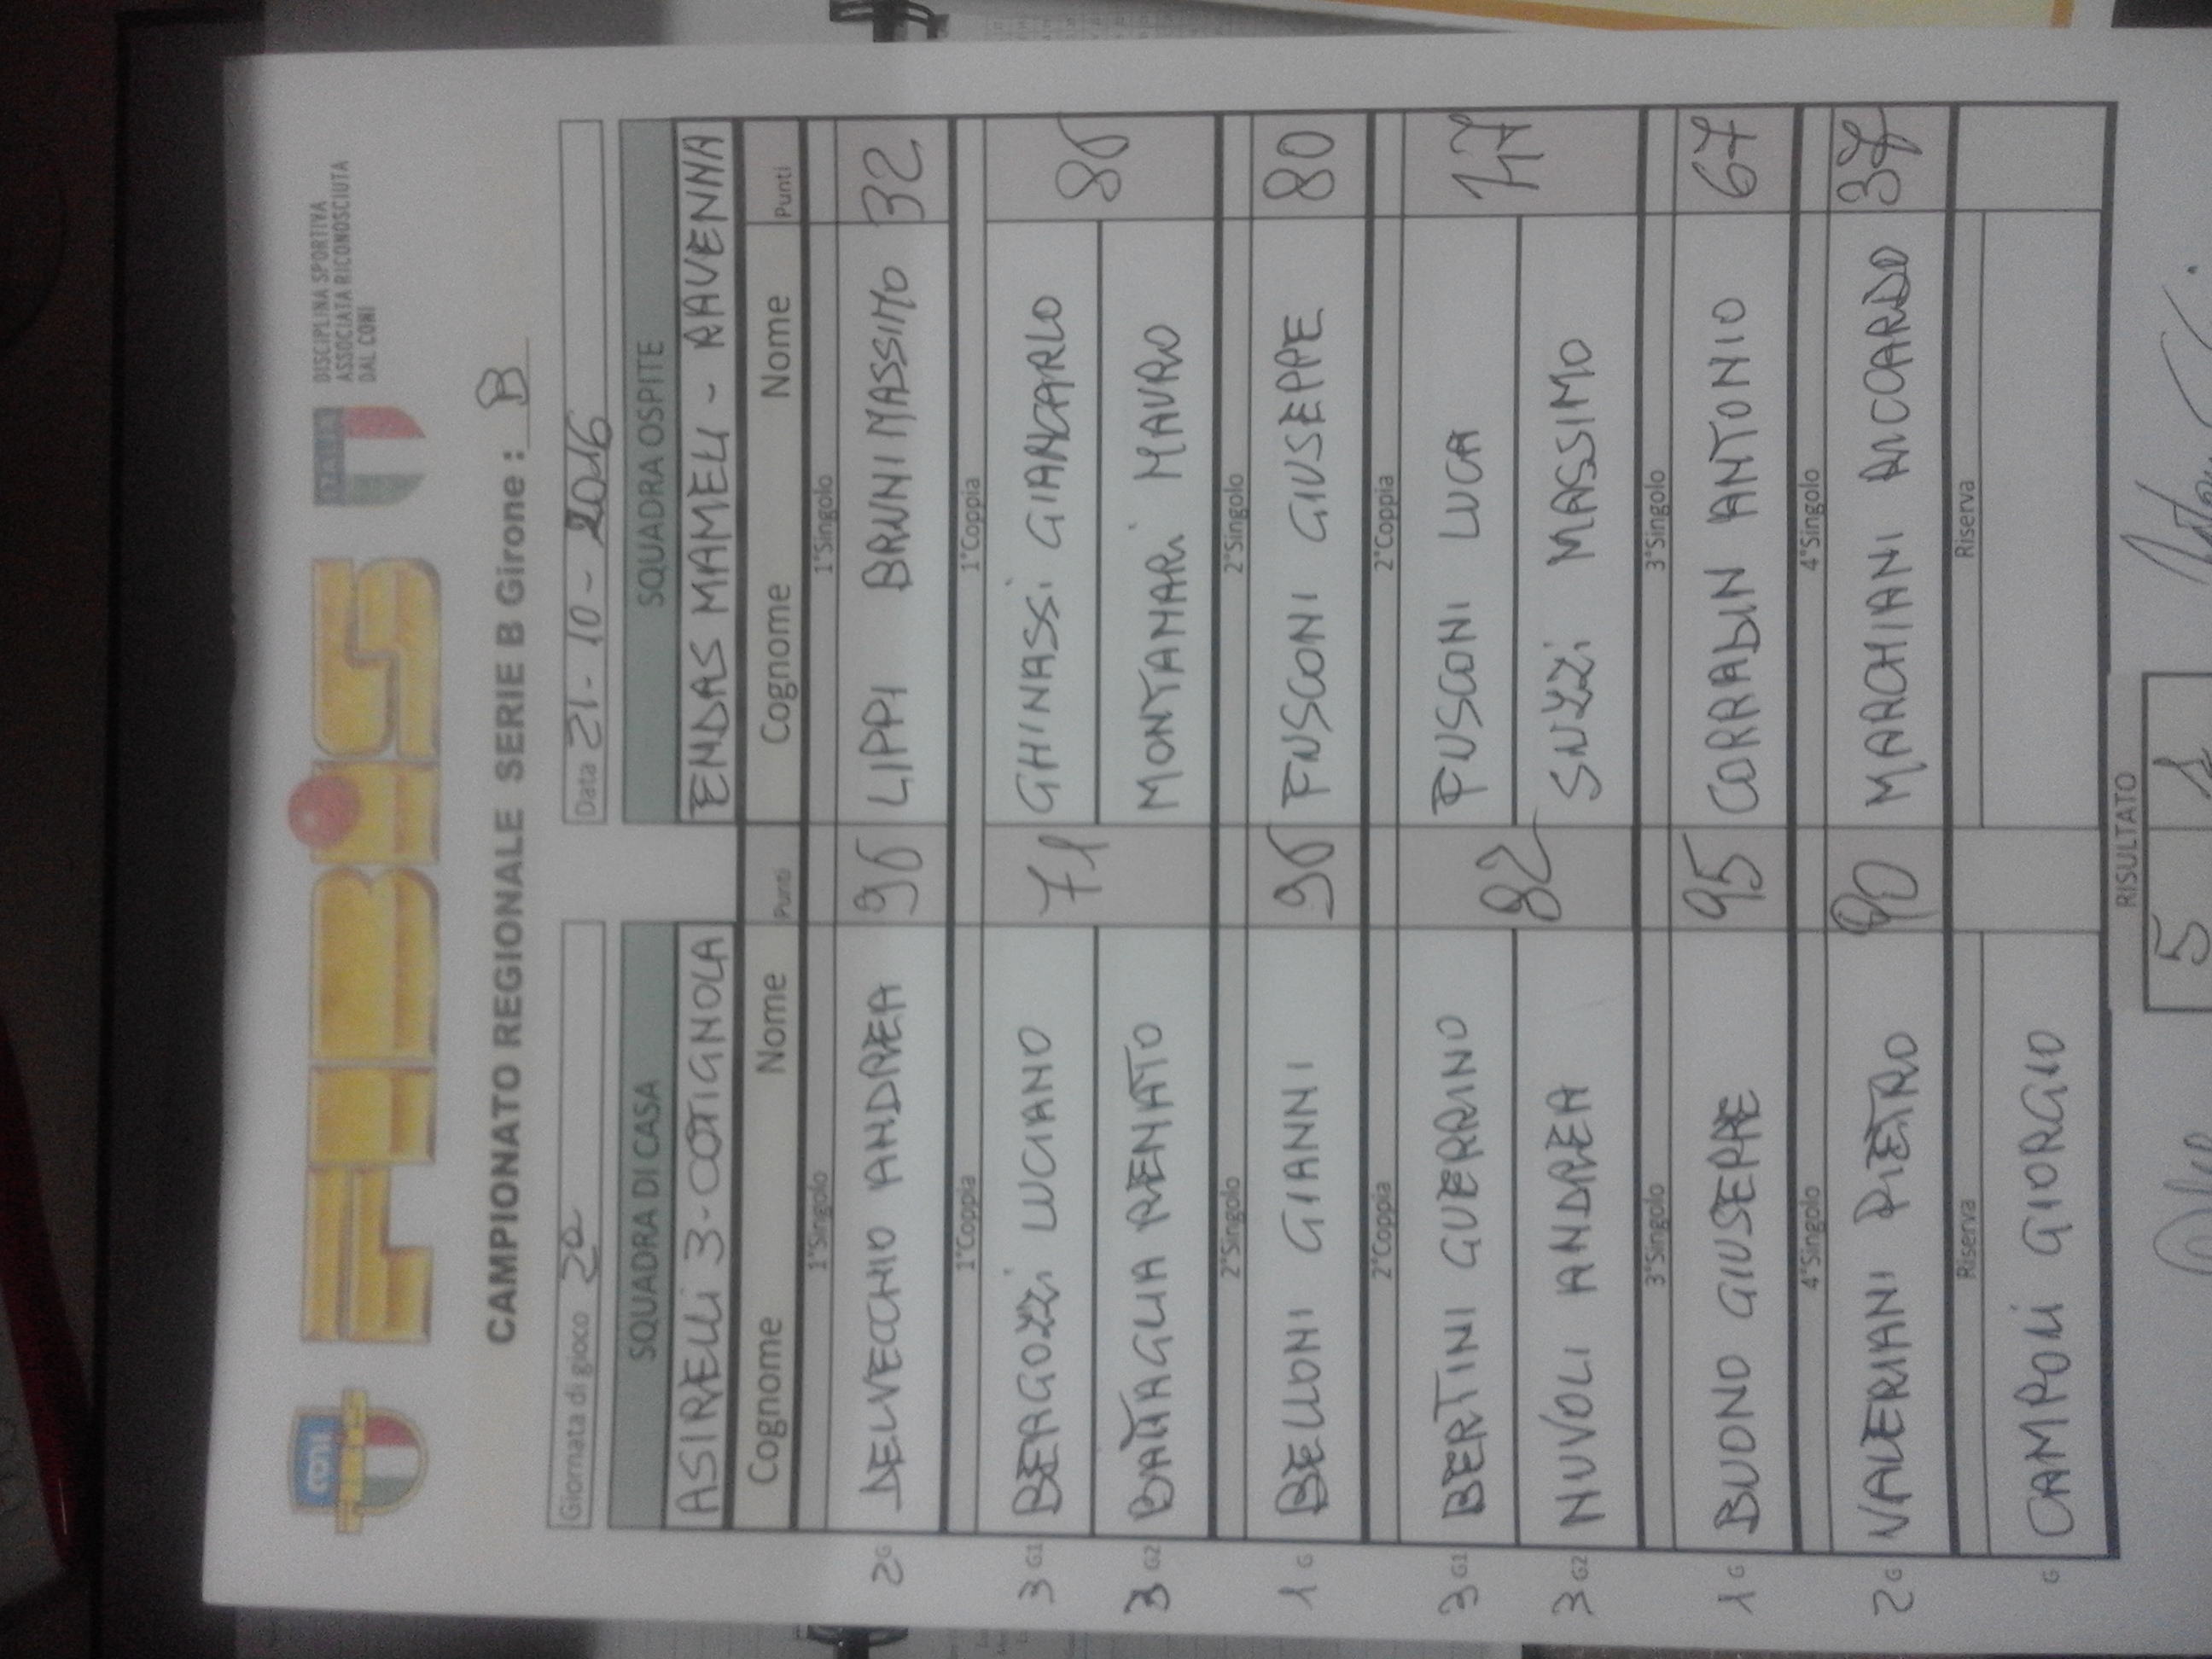 CONI
FIBIS
ITALIA
DISCIPLINA SPORTIVA
ASSOCIATA RICONOSCIUTA
DAL CONI
CAMPIONATO REGIONALE SERIE B Girone: B
Giornata di gioco 2ª Data 21-10-2016
SQUADRA DI CASA SQUADRA OSPITE
ASIRELLI 3-COTIGNOLA ENDAS MAMELI - RAVENNA
Cognome Nome Punti Cognome Nome Punti
1°Singolo 1°Singolo
2 G DELVECCHIO ANDREA 96 LIPPI BRUNI MASSIMO 32
1°Coppia 1°Coppia
3 G1 BERGOZZI LUCIANO 71 GHINASSI GIANCARLO 86
3 G2 BATTAGLIA RENATO MONTANARI MAURO
2°Singolo 2°Singolo
1 G BELLONI GIANNI 96 FUSCONI GIUSEPPE 80
2°Coppia 2°Coppia
3 G1 BERTINI GUERRINO 82 FUSCONI LUCA 47
3 G2 NUVOLI ANDREA SUZZI MASSIMO
3°Singolo 3°Singolo
1 G BUONO GIUSEPPE 95 CORRADIN ANTONIO 67
4°Singolo 4°Singolo
2 G VALERIANI PIETRO 90 MARCHIANI RICCARDO 37
Riserva Riserva
G CAMPOLI GIORGIO
RISULTATO
5 1